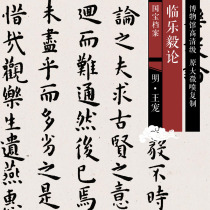 博物馆高清级 原大微喷复制
临乐毅论
国宝档案
明·王宠
毅不時
論之夫求古賢之意
迴而難通然後已焉
未盡乎而多劣之是
惜哉觀樂生遺燕惠